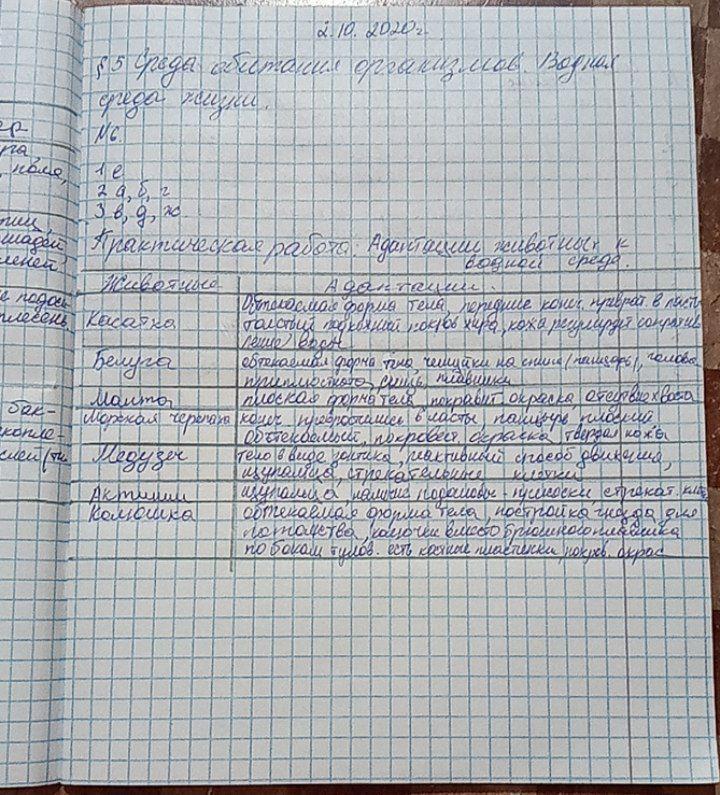 2.10.2020г.
§5 Среда обитания организмов. Водная
среда жизни.
№6.
1 е
2 а, б, г
3 в, д, ж
Практическая работа: Адаптации животных к
водной среде.
Животные Адаптации.
Обтекаемая форма тела, передние конеч. преврат. в ласты
Касатка толстый подкожный покров жира, кожа регулирует сопротив
ление воды
Белуга обтекаемая форма тела, чешуйки на спине (панцирь), голова
плавники
Манта плоская форма тела, окраска, отсутствие хвоста
Морская черепаха конеч. превротились в ласты, панцирь плоский
обтекаемый, покровит. окраска твердая кожа
Медузы тело в виде зонтика, реактивный способ движения,
щупальца, стрекательные клетки
Актинии щупальца, наличие подошвы - присоски стрекат. клет
Колюшка обтекаемая форма тела, постройка гнезда для
потомства, колючки вместо брюшного плавника
по бокам тулов. есть костные пластинки, покров. окрас
ер
рга
, поля,
тиц,
шадей
леней.
е подос
плесень
бак-
копле-